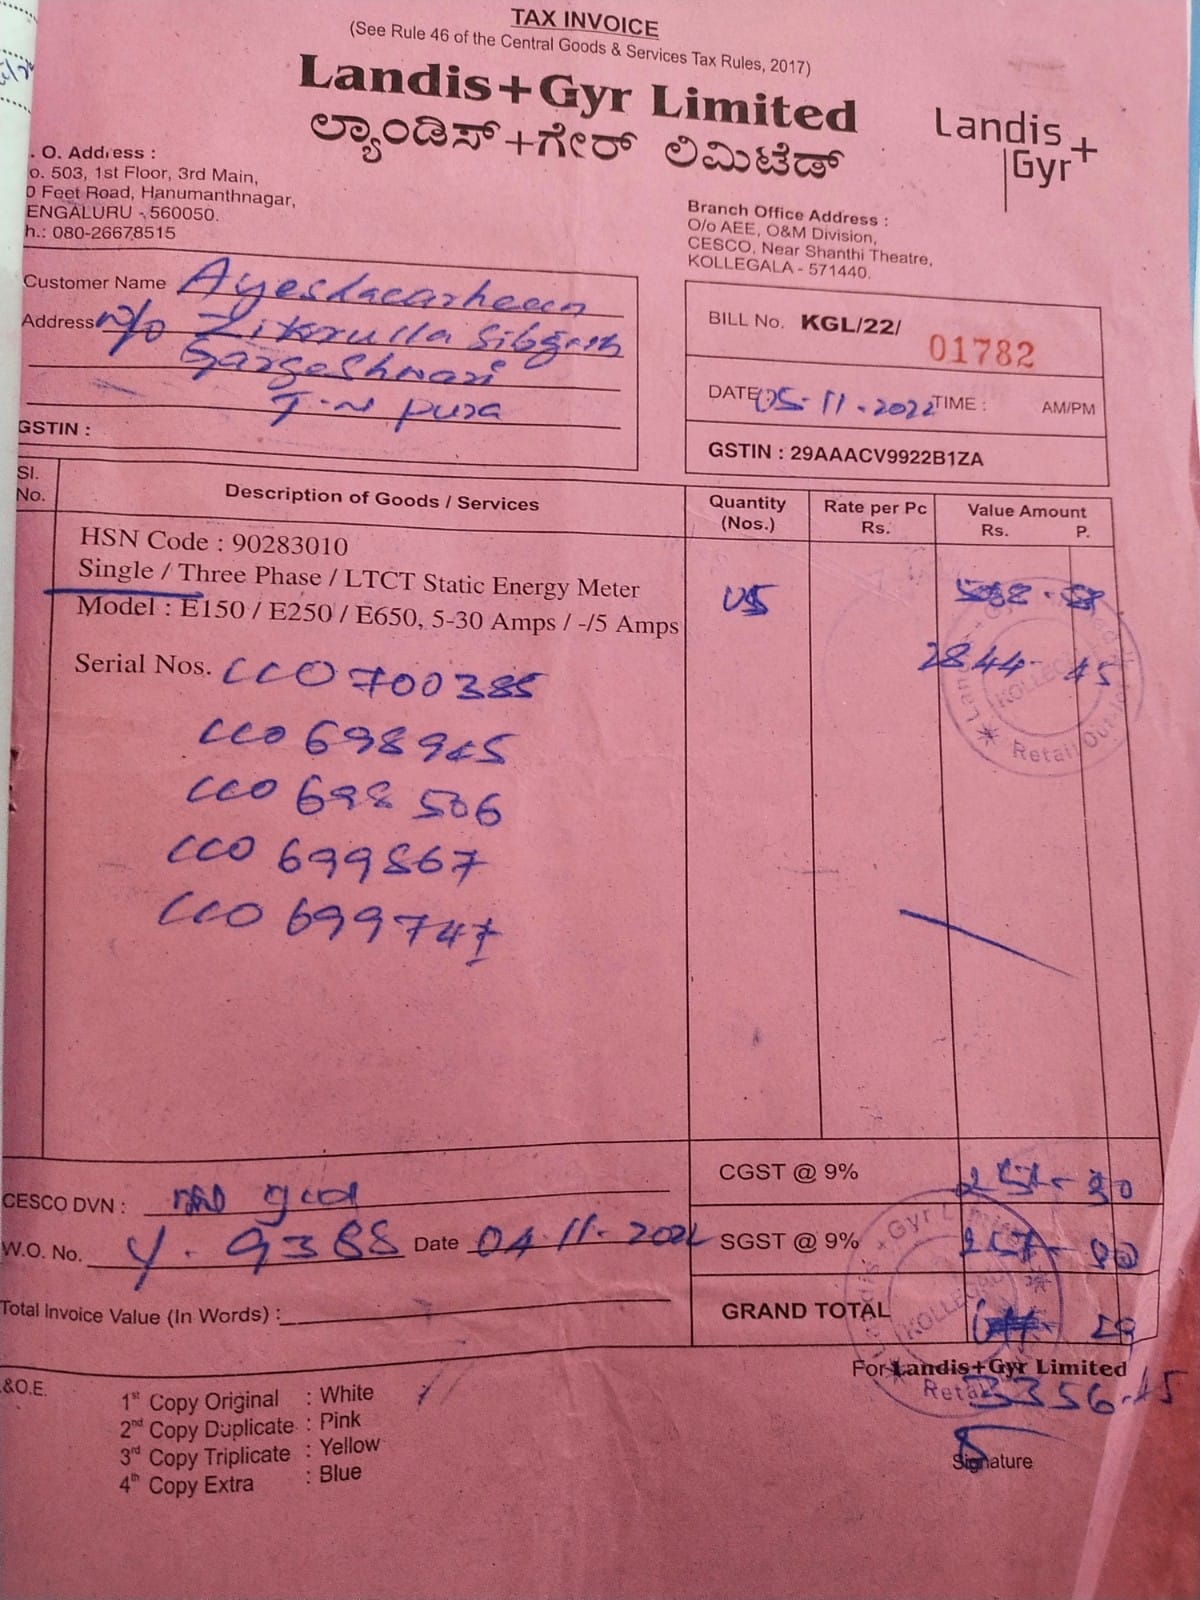 TAX INVOICE
(See Rule 46 of the Central Goods & Services Tax Rules, 2017)
Landis+Gyr Limited
ಲ್ಯಾಂಡಿಸ್+ಗೇರ್ ಲಿಮಿಟೆಡ್
Landis
Gyr+
. O. Address :
o. 503, 1st Floor, 3rd Main,
0 Feet Road, Hanumanthnagar,
ENGALURU - 560050.
h.: 080-26678515
Branch Office Address :
O/o AEE, O&M Division,
CESCO, Near Shanthi Theatre,
KOLLEGALA - 571440.
Customer Name
Address w/o Zikrulla
Gargeshwari
T-N pura
GSTIN :
BILL No. KGL/22/ 01782
DATE: 05-11-2022 TIME : AM/PM
GSTIN : 29AAACV9922B1ZA
Sl. No. Description of Goods / Services Quantity (Nos.) Rate per Pc Rs. Value Amount Rs. P.
HSN Code : 90283010
Single / Three Phase / LTCT Static Energy Meter 05
Model : E150 / E250 / E650, 5-30 Amps / -/5 Amps
2844-
Serial Nos. CCO 700385
CCO 698945
CCO 698506
CCO 699867
CCO 699747
CGST @ 9%
CESCO DVN :
SGST @ 9%
W.O. No. Y. 9388 Date 04-11-2022
GRAND TOTAL
Total Invoice Value (In Words) :
For Landis+Gyr Limited
3356-
&O.E.
1st Copy Original : White
2nd Copy Duplicate : Pink
3rd Copy Triplicate : Yellow
4th Copy Extra : Blue
Signature